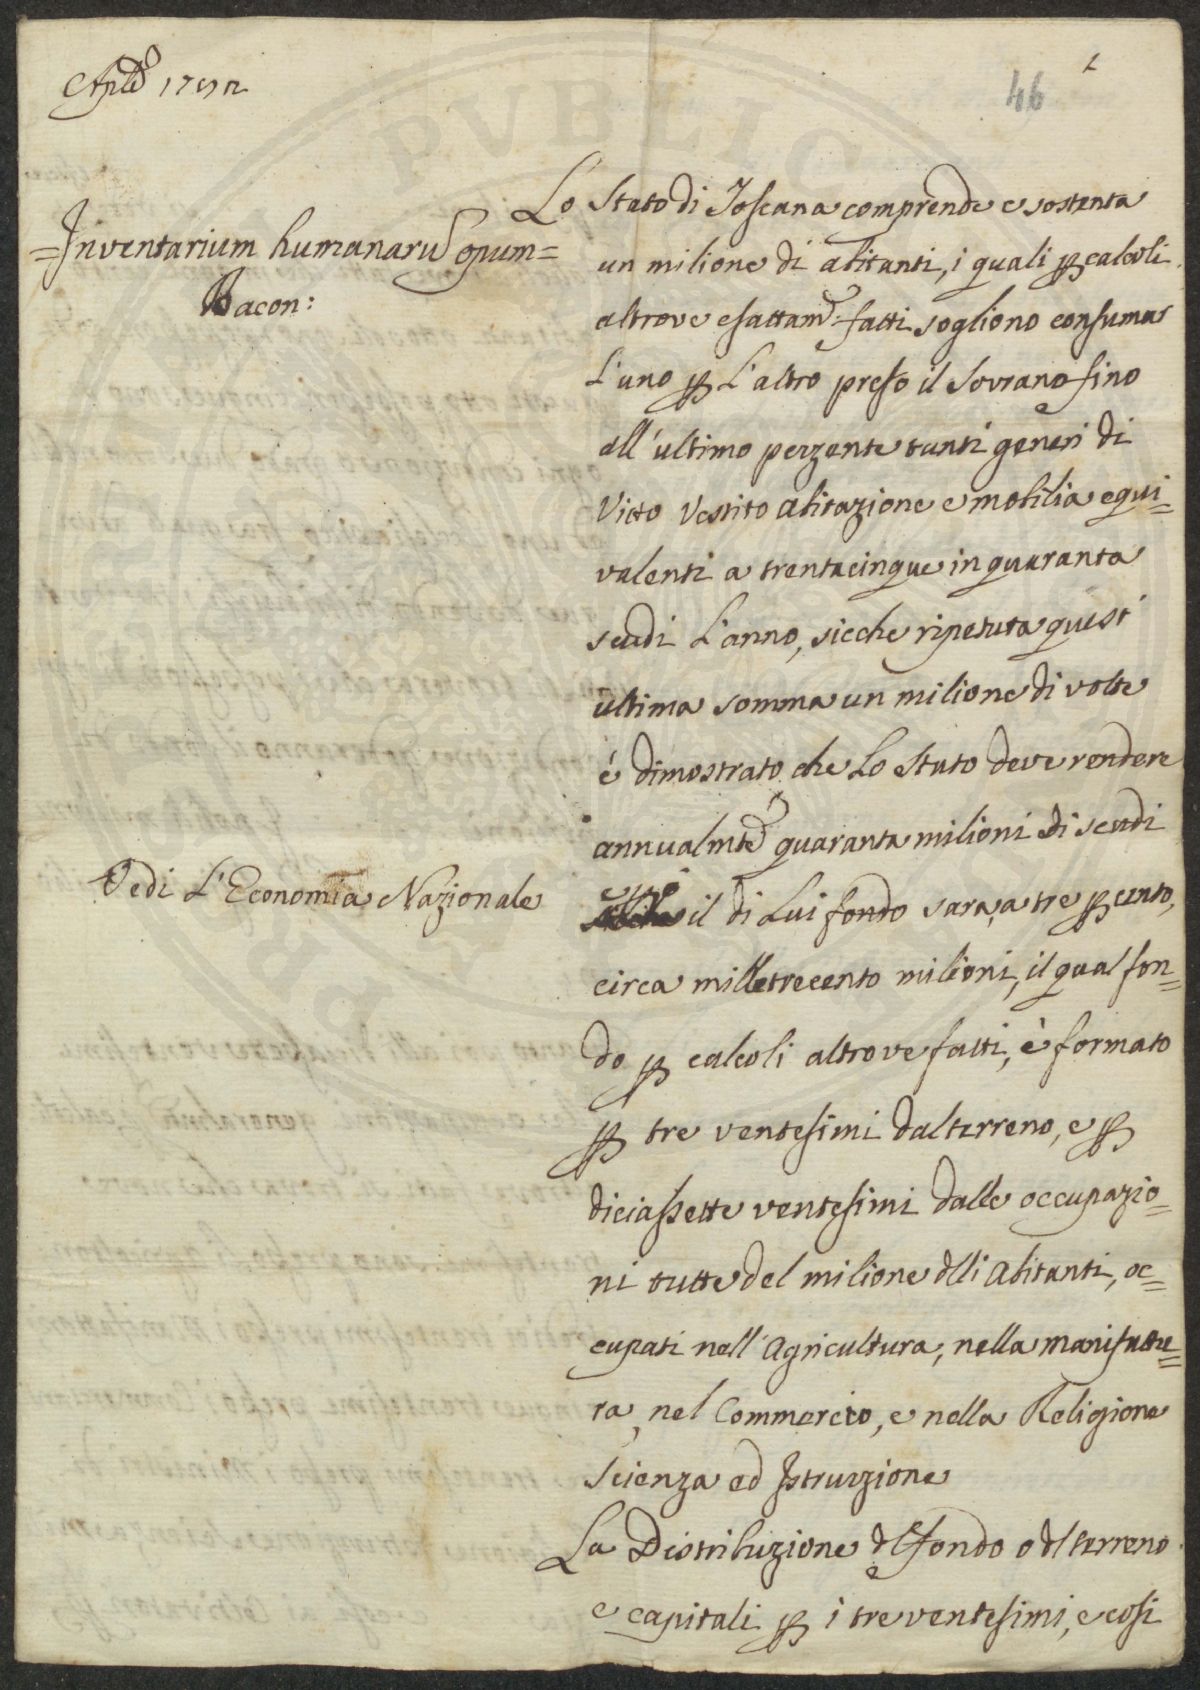 Aple 1792
46
1
=Inventarium humanaru opum=
Bacon:
Lo Stato di Toscana comprende e sostenta
un milione di abitanti, i quali p calcoli
altrove esattamte: fatti sogliono consumar
l'uno p l'altro preso il Sovrano fino
all'ultimo pezzente tanti generi di
Vitto Vestito abitazione e mobilia equi=
valenti a trentacinque in quaranta
scudi l'anno, sicche ripetuta quest'
ultima somma un milione di volte
é dimostrato che Lo Stato deve rendere
annualmte quaranta milioni di scudi
Vedi L'Economia Nazionale
e tto il di Lui fondo sara, a tre p cento,
circa milletrecento milioni, il qual fon=
do p calcoli altrove fatti, è formato
p tre ventesimi dal terreno, e p
diciassette ventesimi dalle occupazio=
ni tutte del milione dlli abitanti, oc=
cupati nell'Agricultura, nella manifattu=
ra, nel Commercio, e nella Religione
Scienza ed Istruzzione
La Distribuzione dl fondo o dl terreno
e capitali p i tre ventesimi, e cosi